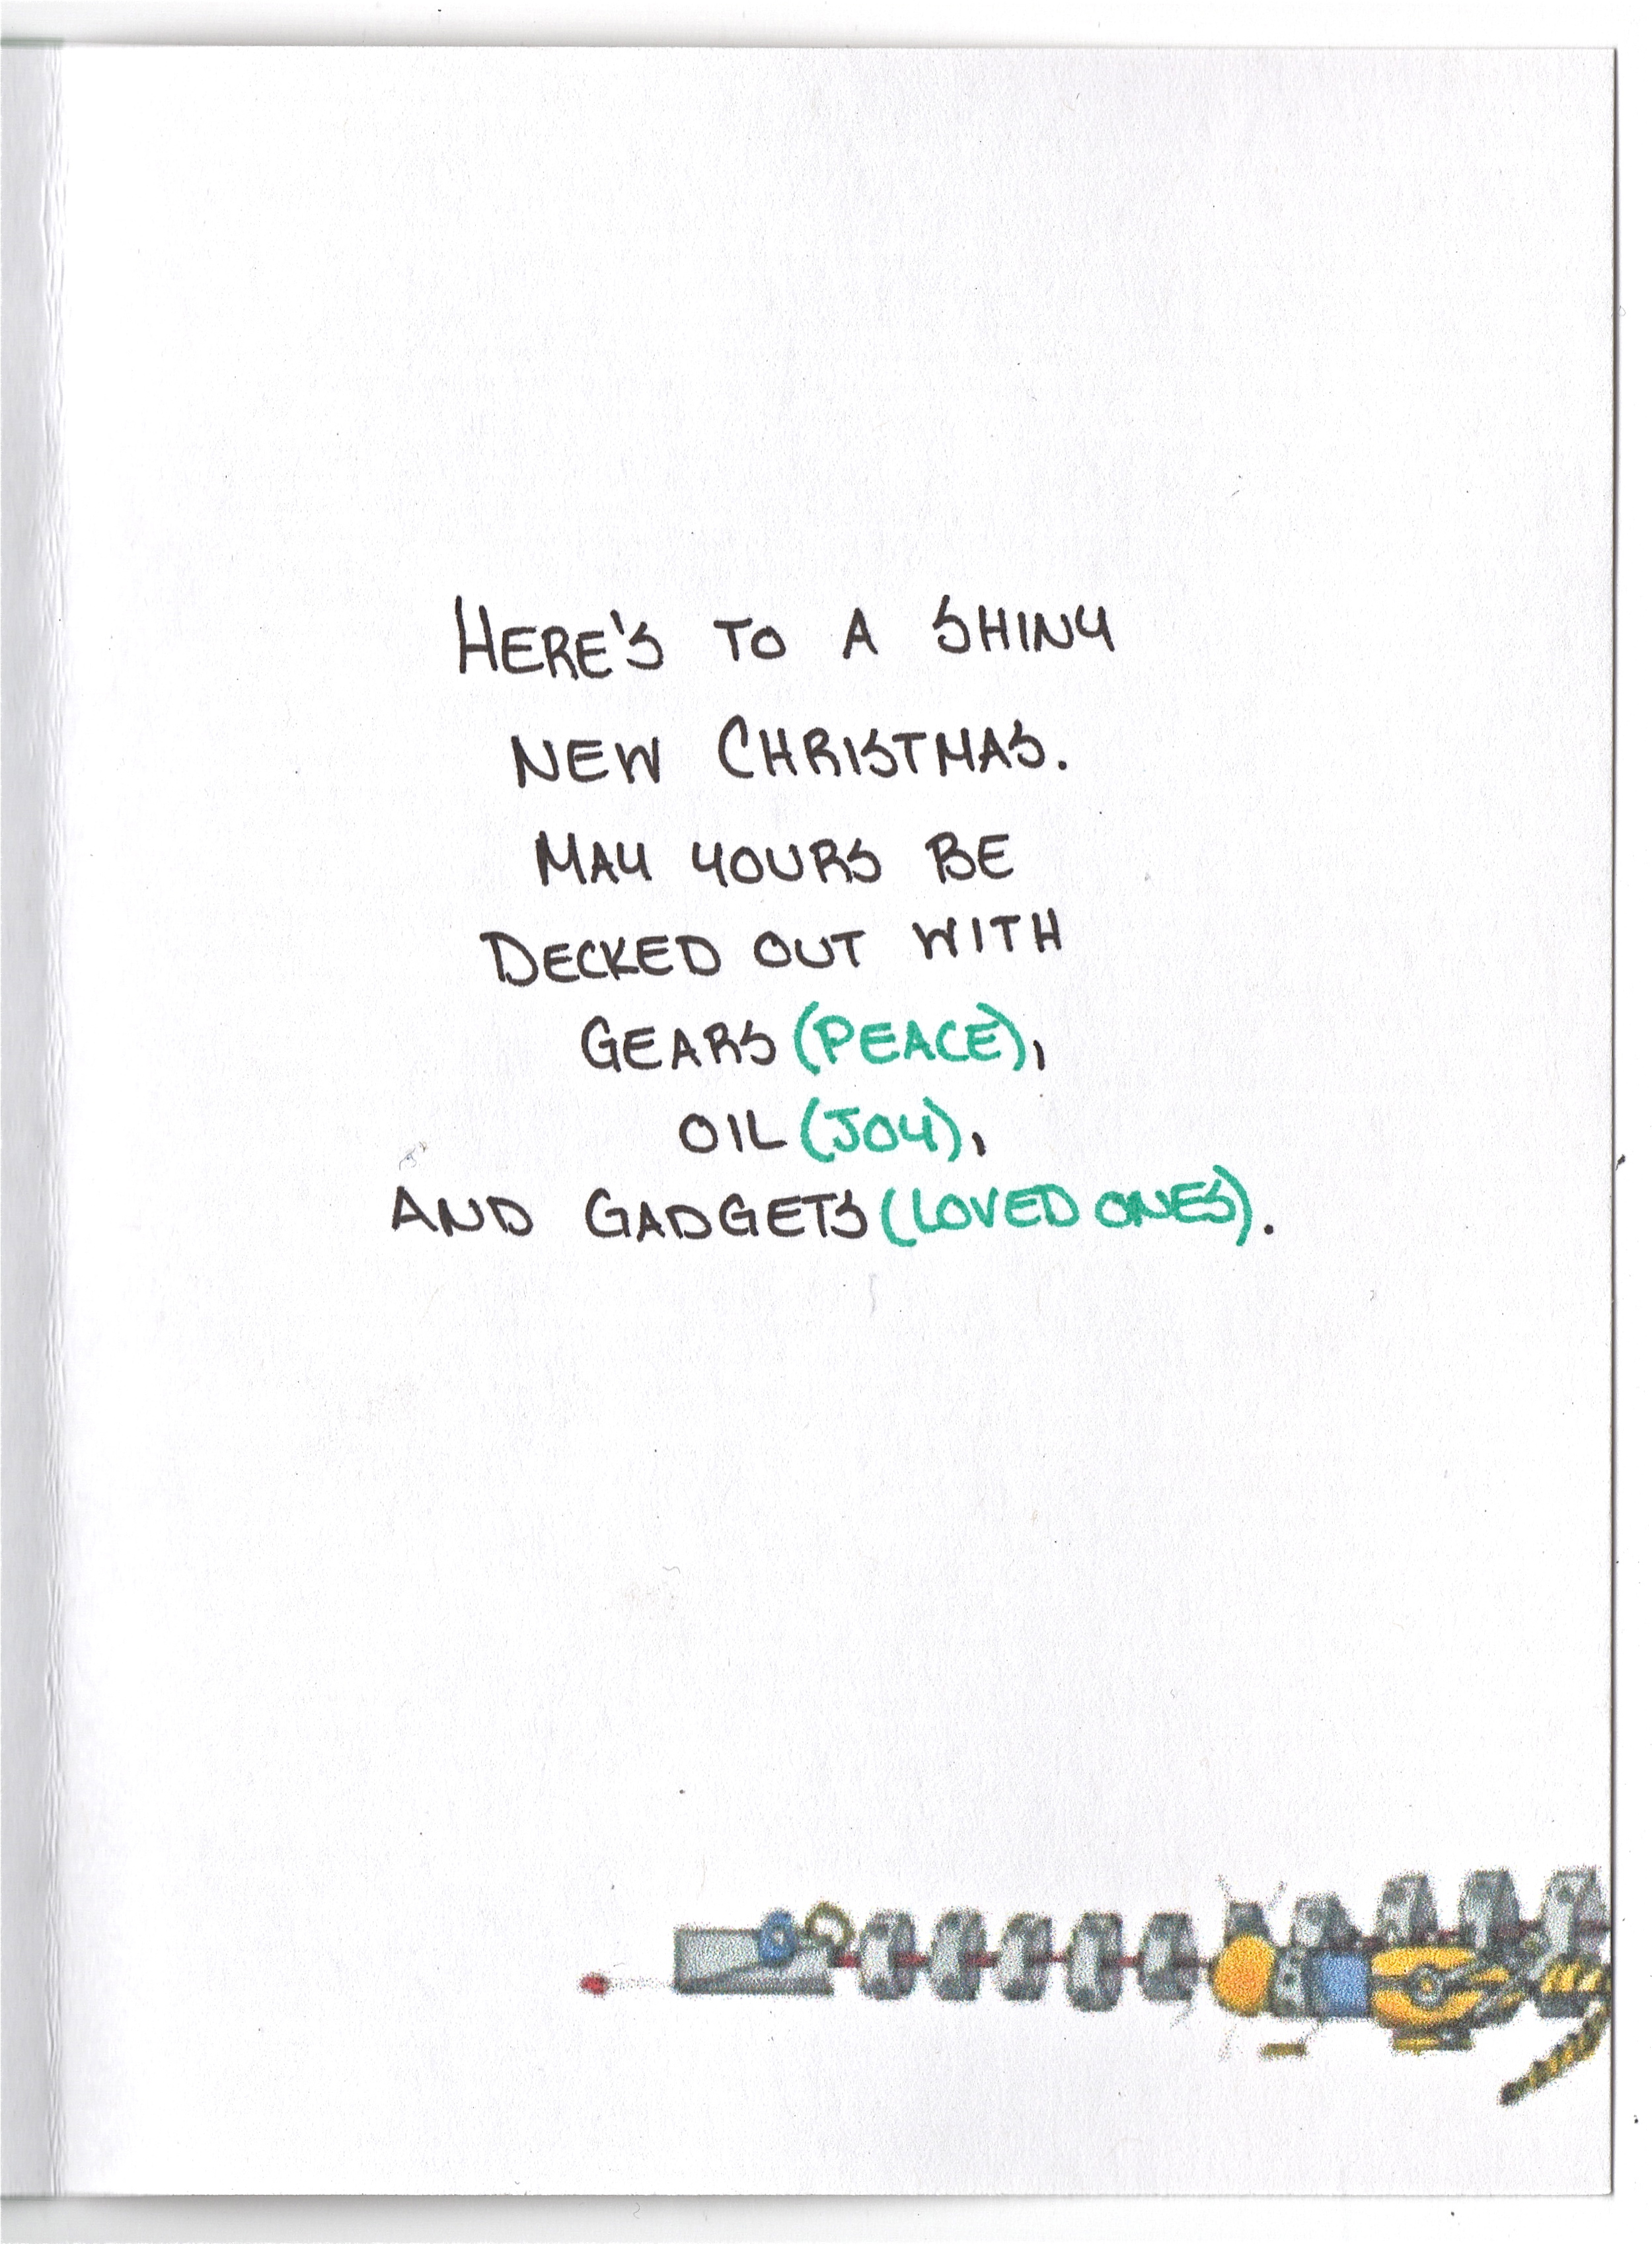 HERE'S TO A SHINY
NEW CHRISTMAS.
MAY YOURS BE
DECKED OUT WITH
GEARS (PEACE),
OIL (JOY),
AND GADGETS (LOVED ONES).